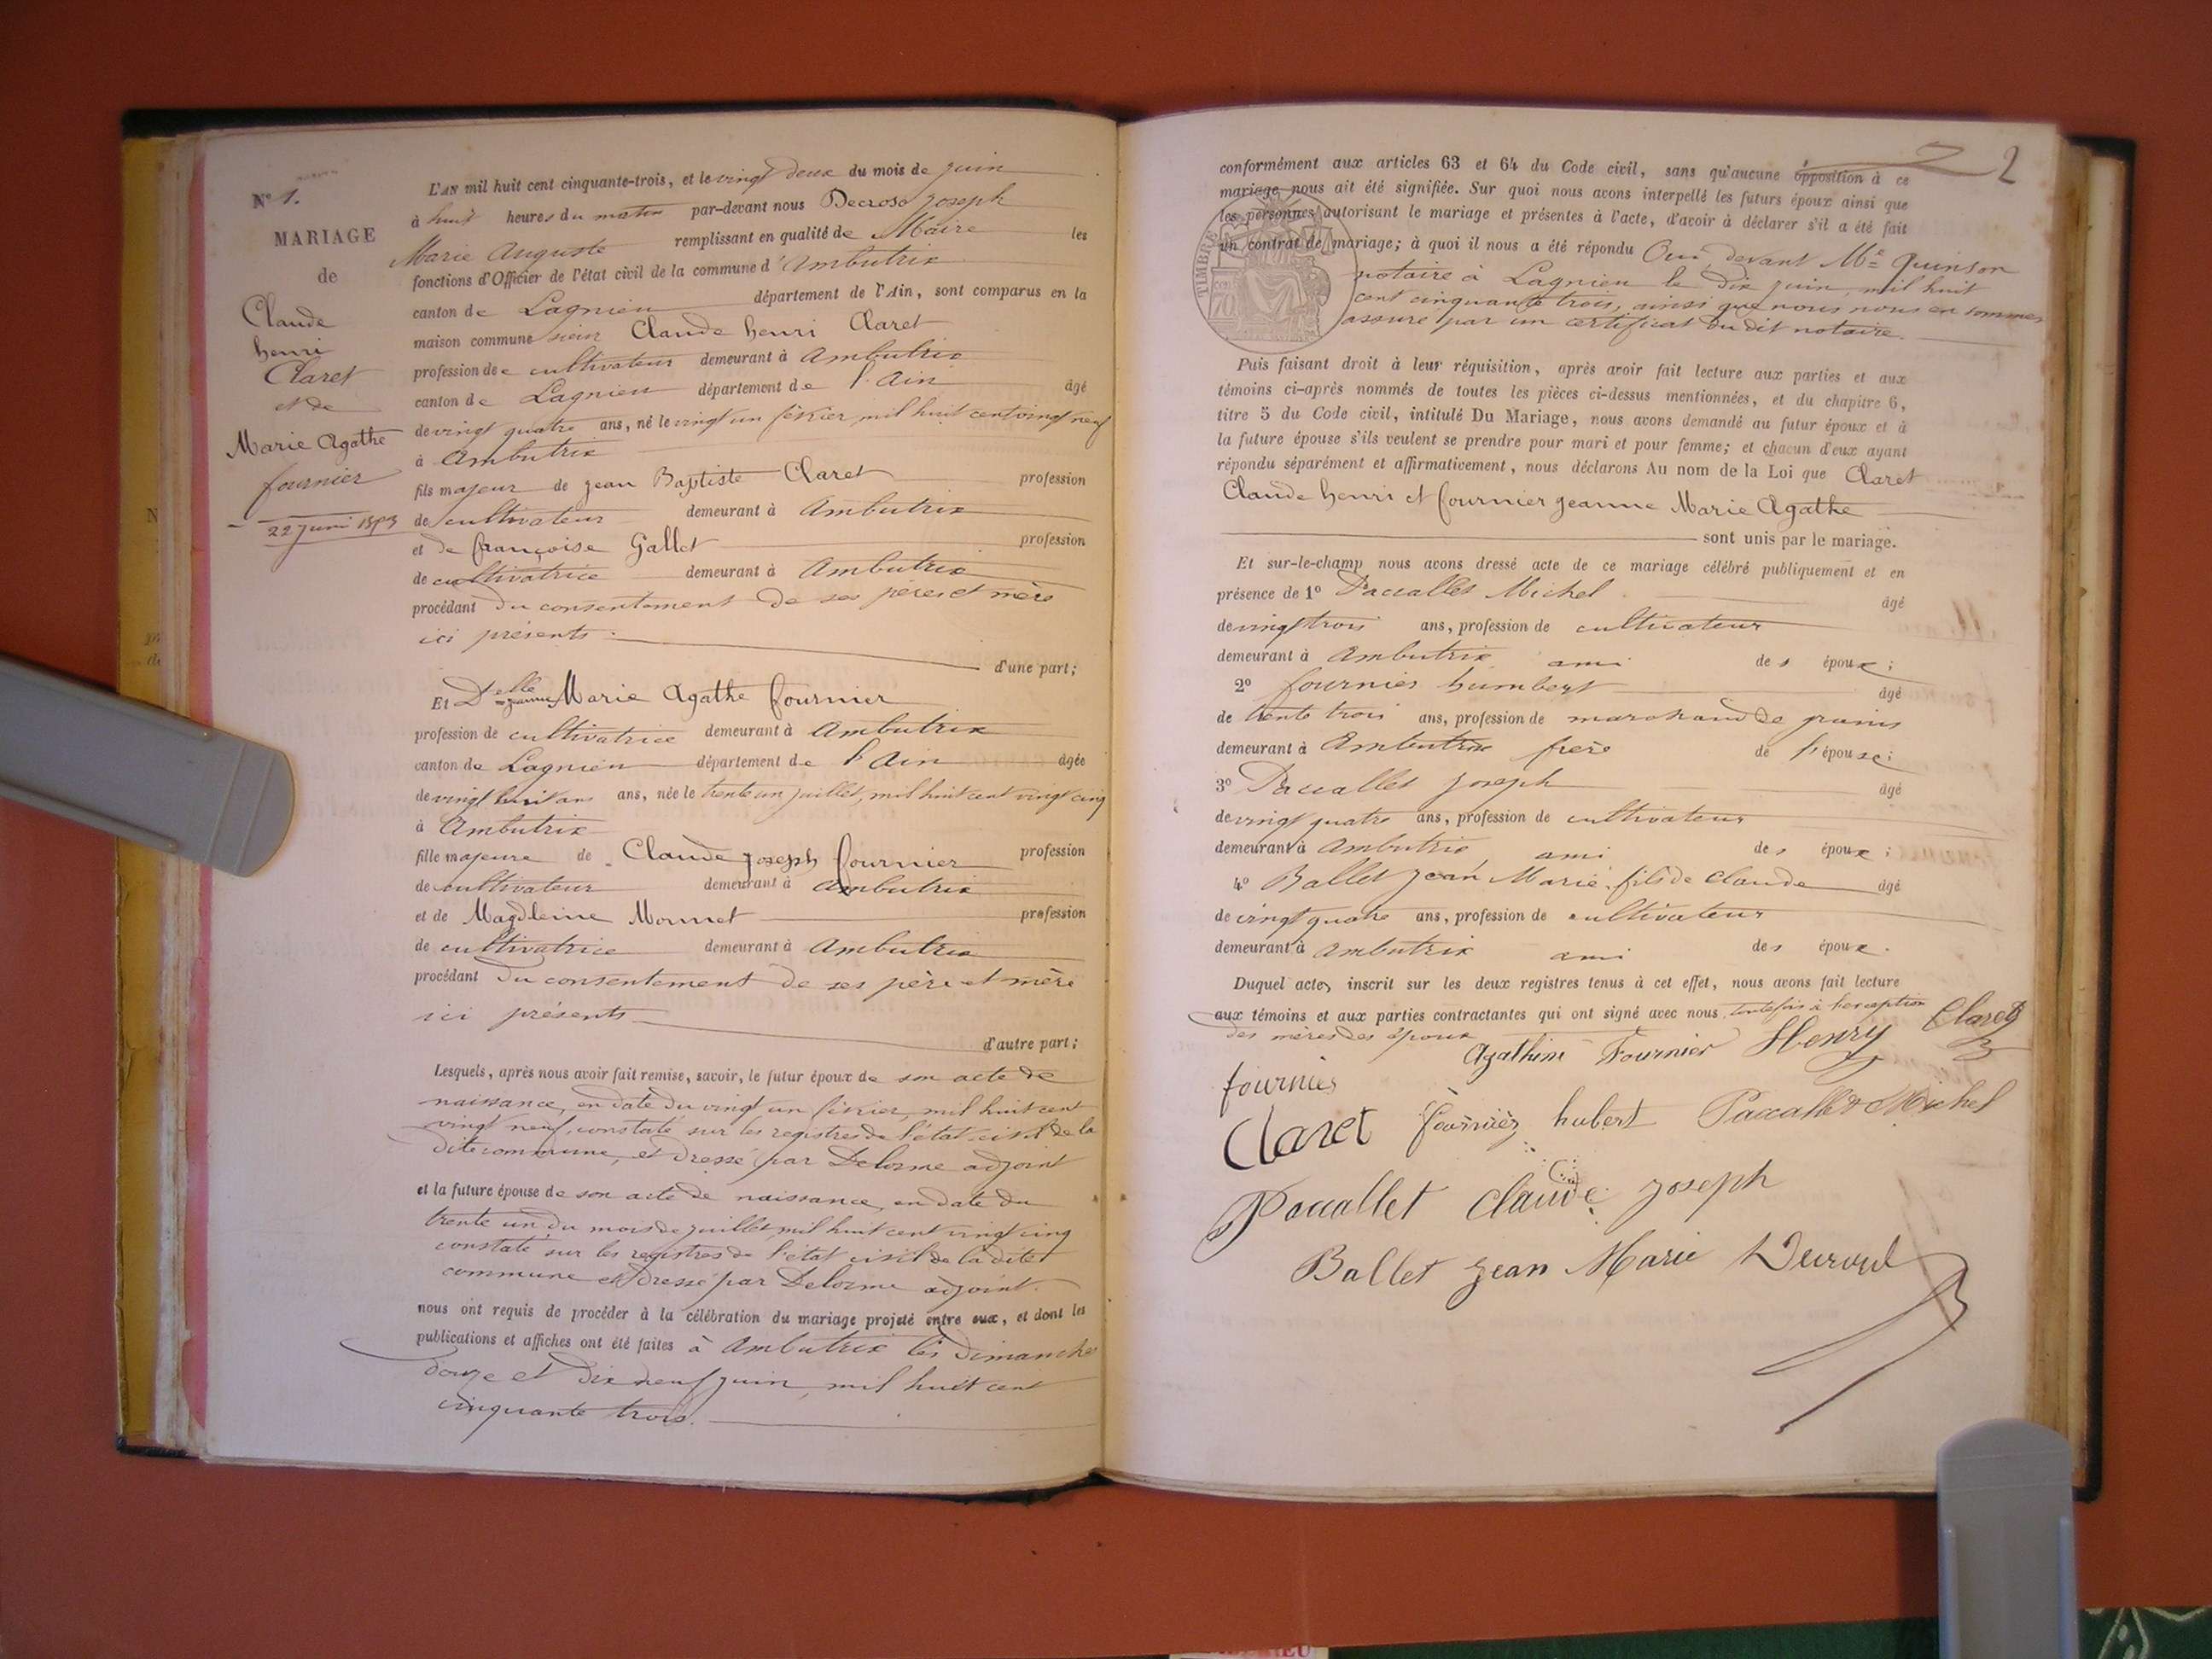 N° 1.
MARIAGE
de
Claude
henri
Claret
et de
Marie Agathe
fournier
22 juin 1853
L'AN mil huit cent cinquante-trois, et le vingt deux du mois de juin
à huit heures du matin par-devant nous Decroso Joseph
Marie Auguste remplissant en qualité de Maire les
fonctions d'Officier de l'état civil de la commune d'Ambutrix
canton de Lagnieu département de l'Ain, sont comparus en la
maison commune sieur Claude henri Claret
profession de cultivateur demeurant à Ambutrix
canton de Lagnieu département de l'Ain âgé
de vingt quatre ans, né le vingt un février mil huit cent vingt neuf
à Ambutrix
fils majeur de jean Baptiste Claret profession
de cultivateur demeurant à Ambutrix
et de françoise Gallet profession
de cultivatrice demeurant à Ambutrix
procédant du consentement de ses pères et mère
ici présents d'une part;
Et Delle jeanne Marie Agathe fournier
profession de cultivatrice demeurant à Ambutrix
canton de Lagnieu département de l'Ain âgée
de vingt huit ans ans, née le trente un juillet, mil huit cent vingt cinq
à Ambutrix
fille majeure de Claude joseph fournier profession
de cultivateur demeurant à Ambutrix
et de Magdleine Monnet profession
de cultivatrice demeurant à Ambutrix
procédant du consentement de ses père et mère
ici présents
d'autre part;
Lesquels, après nous avoir fait remise, savoir, le futur époux de son acte de
naissance, en date du vingt un février, mil huit cent
vingt neuf, constaté sur les registres de l'état civil de la
dite commune, et dressé par Delorme adjoint
et la future épouse de son acte de naissance, en date du
trente un du mois de juillet mil huit cent vingt cinq
constaté sur les registres de l'état civil de la dite
commune et dressé par Delorme adjoint.
nous ont requis de procéder à la célébration du mariage projeté entre eux, et dont les
publications et affiches ont été faites à Ambutrix les Dimanches
douze et dix neuf juin, mil huit cent
cinquante trois.
2
conformément aux articles 63 et 64 du Code civil, sans qu'aucune opposition à ce
mariage nous ait été signifiée. Sur quoi nous avons interpellé les futurs époux ainsi que
les personnes autorisant le mariage et présentes à l'acte, d'avoir à déclarer s'il a été fait
un contrat de mariage; à quoi il nous a été répondu Oui, devant Me Quinson
notaire à Lagnieu le dix juin, mil huit
cent cinquante trois, ainsi que nous nous en sommes
assuré par un certificat du dit notaire.
TIMBRE
70
Puis faisant droit à leur réquisition, après avoir fait lecture aux parties et aux
témoins ci-après nommés de toutes les pièces ci-dessus mentionnées, et du chapitre 6,
titre 5 du Code civil, intitulé Du Mariage, nous avons demandé au futur époux et à
la future épouse s'ils veulent se prendre pour mari et pour femme; et chacun d'eux ayant
répondu séparément et affirmativement, nous déclarons Au nom de la Loi que Claret
Claude henri et fournier jeanne Marie Agathe
sont unis par le mariage.
Et sur-le-champ nous avons dressé acte de ce mariage célébré publiquement et en
présence de 1° Paccallet Michel âgé
de vingt trois ans, profession de cultivateur
demeurant à Ambutrix ami des époux;
2° fournier humbert âgé
de trente trois ans, profession de marchand de grains
demeurant à Ambutrix frère de l'épouse;
3° Paccallet joseph âgé
de vingt quatre ans, profession de cultivateur
demeurant à Ambutrix ami des époux;
4° Ballet jean Marie fils de claude âgé
de vingt quatre ans, profession de cultivateur
demeurant à Ambutrix ami des époux.
Duquel acte, inscrit sur les deux registres tenus à cet effet, nous avons fait lecture
aux témoins et aux parties contractantes qui ont signé avec nous, toutefois à l'exception
des mères des époux
Agathine Fournier Henry Claret
fournier
Claret fournier hubert Paccallet Michel
Paccallet claude joseph
Ballet jean Marie